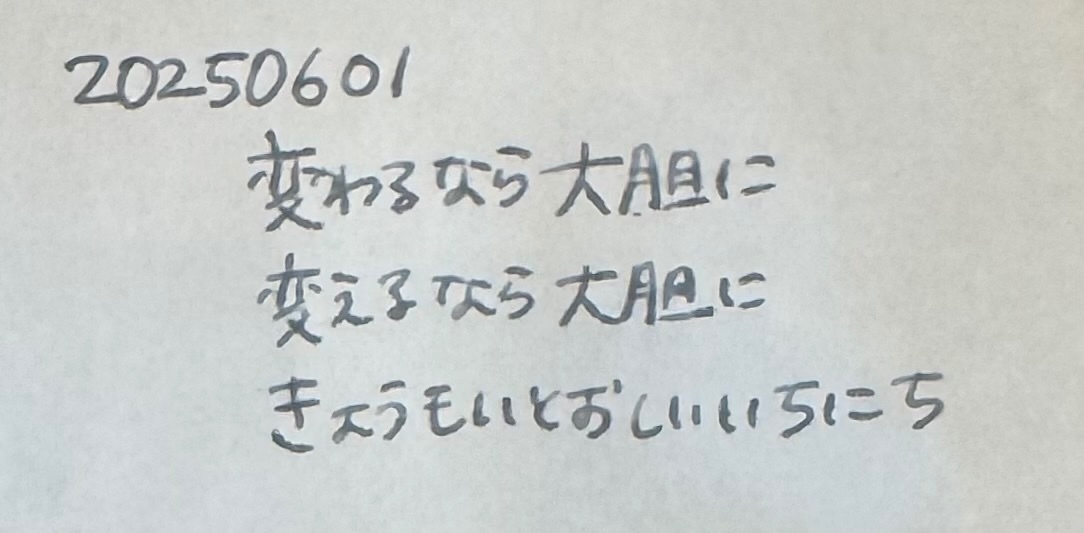 20250601
変わるなら大胆に
変えるなら大胆に
きょうもいとおしいいちにち